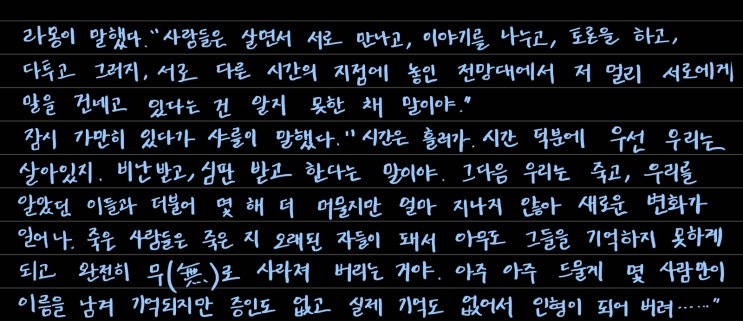 라몽이 말했다. "사람들은 살면서 서로 만나고, 이야기를 나누고, 토론을 하고,
다투고 그러지, 서로 다른 시간의 지점에 놓인 전망대에서 저 멀리 서로에게
말을 건네고 있다는 건 알지 못한 채 말이야."
잠시 가만히 있다가 샤를이 말했다. "시간은 흘러가. 시간 덕분에 우선 우리는
살아있지. 비난받고, 심판 받고 한다는 말이야. 그다음 우리는 죽고, 우리를
알았던 이들과 더불어 몇 해 더 머물지만 얼마 지나지 않아 새로운 변화가
일어나. 죽은 사람들은 죽은 지 오래된 자들이 돼서 아무도 그들을 기억하지 못하게
되고 완전히 무(無)로 사라져 버리는 거야. 아주 아주 드물게 몇 사람만이
이름을 남겨 기억되지만 증인도 없고 실제 기억도 없어서 인형이 되어 버려……"